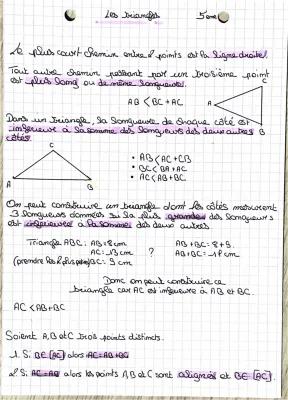 Les triangles 5ème
Le plus court chemin entre 2 points est la ligne droite.
Tout autre chemin passant par un troisième point
est plus long ou de même longueur.
AB < BC + AC
A
C
B
Dans un triangle, la longueur de chaque côté est
inférieure à la somme des longueurs des deux autres
côtés.
C
A
B
• AB < AC + CB
• BC < BA + AC
• AC < AB + BC
On peut construire un triangle dont les côtés mesurent
3 longueurs données si la plus grande des longueurs
est inférieure à la somme des deux autres.
Triangle ABC : AB = 8 cm AB + BC = 8 + 9.
AC = 13 cm ? AB + BC = 17 cm
(prendre les 2 plus petits) BC = 9 cm
Donc on peut construire ce
triangle car AC est inférieure à AB et BC.
AC < AB + BC
Soient A, B et C trois points distincts.
1. Si B∈[AC] alors AC = AB + BC
2. Si AC = AB alors les points A, B et C sont alignés et B∈[AC].